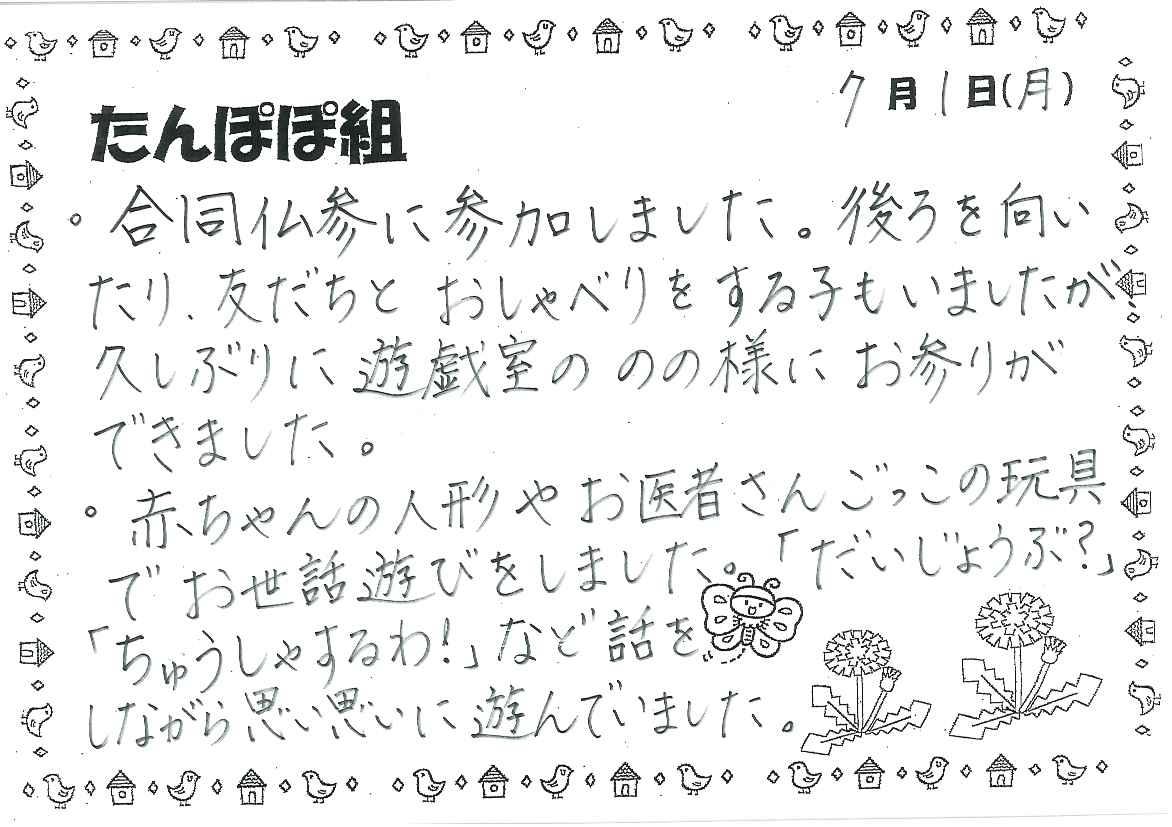 7月1日(月)
たんぽぽ組
。合同仏参に参加しました。後ろを向い
たり、友だちと おしゃべりをする子もいましたが、
久しぶりに遊戯室の のの様に お参りが
できました。
。赤ちゃんの人形や お医者さんごっこの玩具
で お世話遊びをしました。「だいじょうぶ？」
「ちゅうしゃするわ！」など話を
しながら思い思いに遊んでいました。